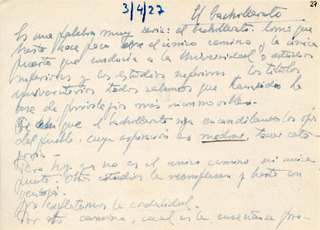 27
3/4/27
El bachillerato
Es una palabra muy seria: el bachillerato. Como que
hasta hace poco era el único camino, la única
puerta que conducía a la Universidad o estudios
superiores y los estudios superiores los títulos
universitarios todos sabemos que han sido la
base de privilegios más inconmovible.
De ahí que el bachillerato siga encandilando los ojos
del pueblo, cuya aspiración es medrar,
Pero hoy ya no es el único camino ni única
puerta. Otros estudios le reemplazan y hasta con
ventaja.
No explotemos la credulidad.
Por otro camino, cual es la enseñanza pro-